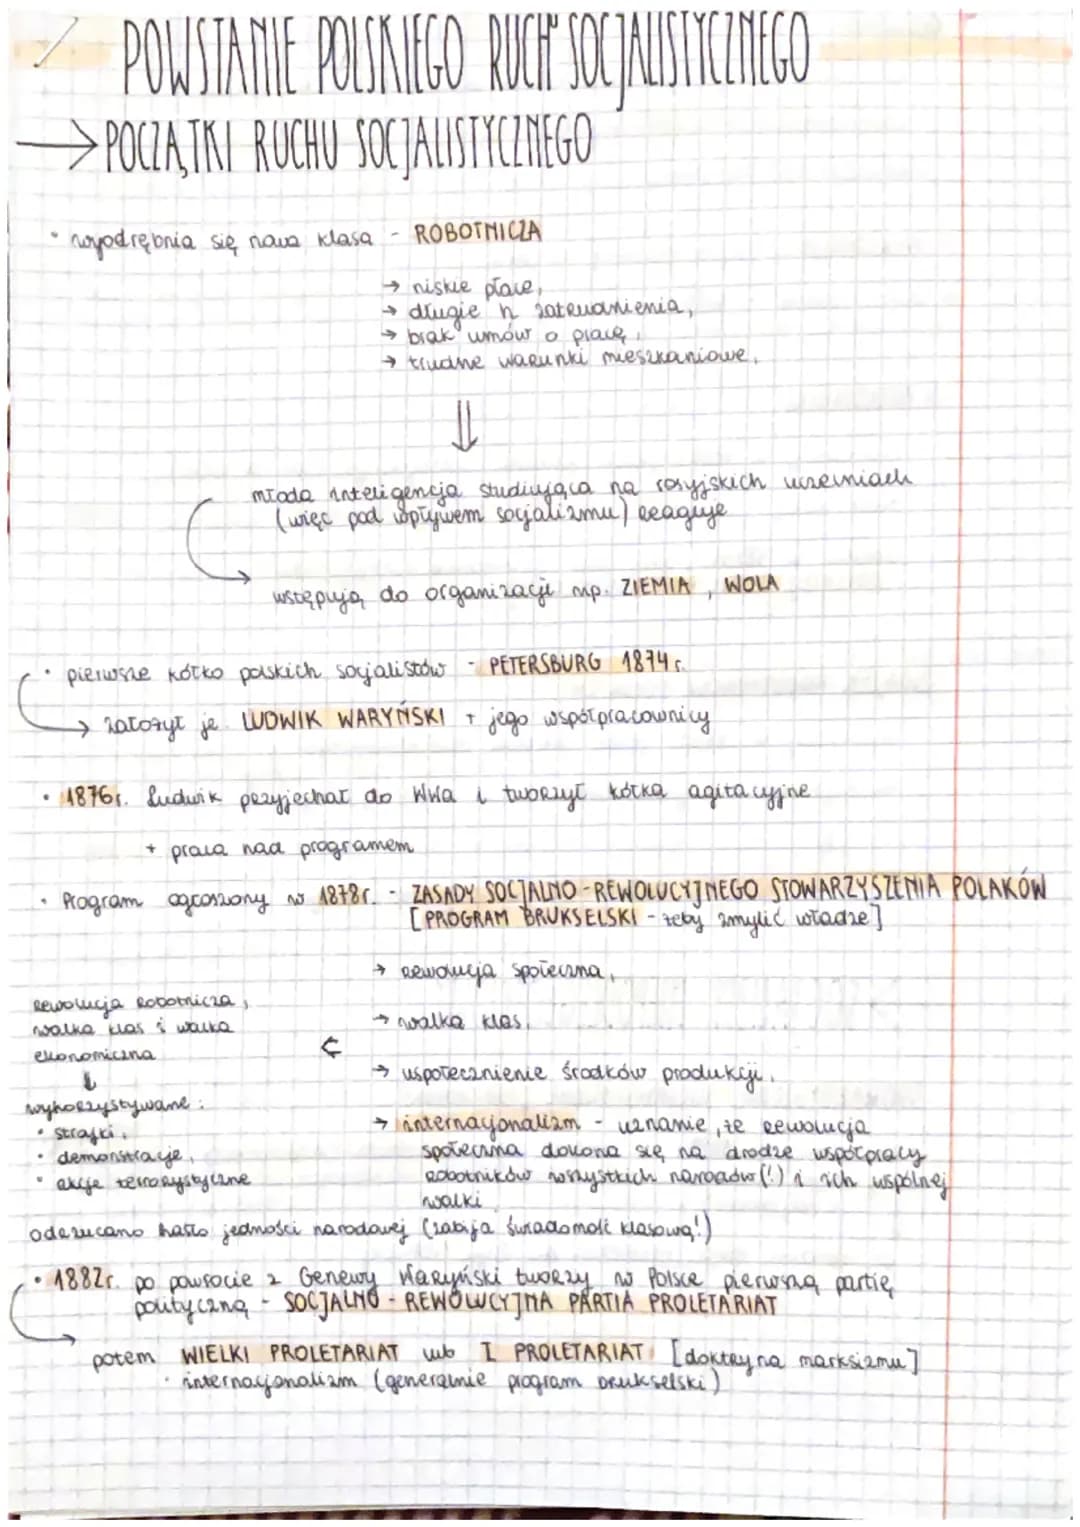 POWSTANIE POLSKIEGO RUCHU SOCJALISTYCZNEGO
→ POCZĄTKI RUCHU SOCJALISTYCZNEGO
• wyodrębnia się nowa klasa - ROBOTNICZA
→ niskie płace,
→ długie h zatrudnienia,
→ brak umów o pracę,
→ trudne warunki mieszkaniowe.
⇓
młoda inteligencja studiująca na rosyjskich uczelniach
(więc pod wpływem socjalizmu) reaguje
→ wstępują do organizacji np. ZIEMIA, WOLA
• pierwsze kółko polskich socjalistów - PETERSBURG 1874r.
→ założył je LUDWIK WARYŃSKI + jego współpracownicy
• 1876r. Ludwik przyjechał do WWa i tworzył kółka agitacyjne
+ praca nad programem
• Program ogłoszony w 1878r. - ZASADY SOCJALNO-REWOLUCYJNEGO STOWARZYSZENIA POLAKÓW
[PROGRAM BRUKSELSKI - żeby zmylić władze]
→ rewolucja społeczna,
→ walka klas,
→ uspołecznienie środków produkcji,
→ internacjonalizm - uznanie, że rewolucja
społeczna dokona się na drodze współpracy
robotników wszystkich narodów (!) i ich wspólnej
walki
rewolucja robotnicza,
walka klas i walka
ekonomiczna
↓
wykorzystywane:
• strajki,
• demonstracje,
• akcje terrorystyczne
odrzucano hasło jedności narodowej (zabija świadomość klasową!)
• 1882r. po powrocie z Genewy Waryński tworzy w Polsce pierwszą partię
polityczną - SOCJALNO-REWOLUCYJNA PARTIA PROLETARIAT
potem WIELKI PROLETARIAT lub I PROLETARIAT [doktryna marksizmu]
• internacjonalizm (generalnie program brukselski)